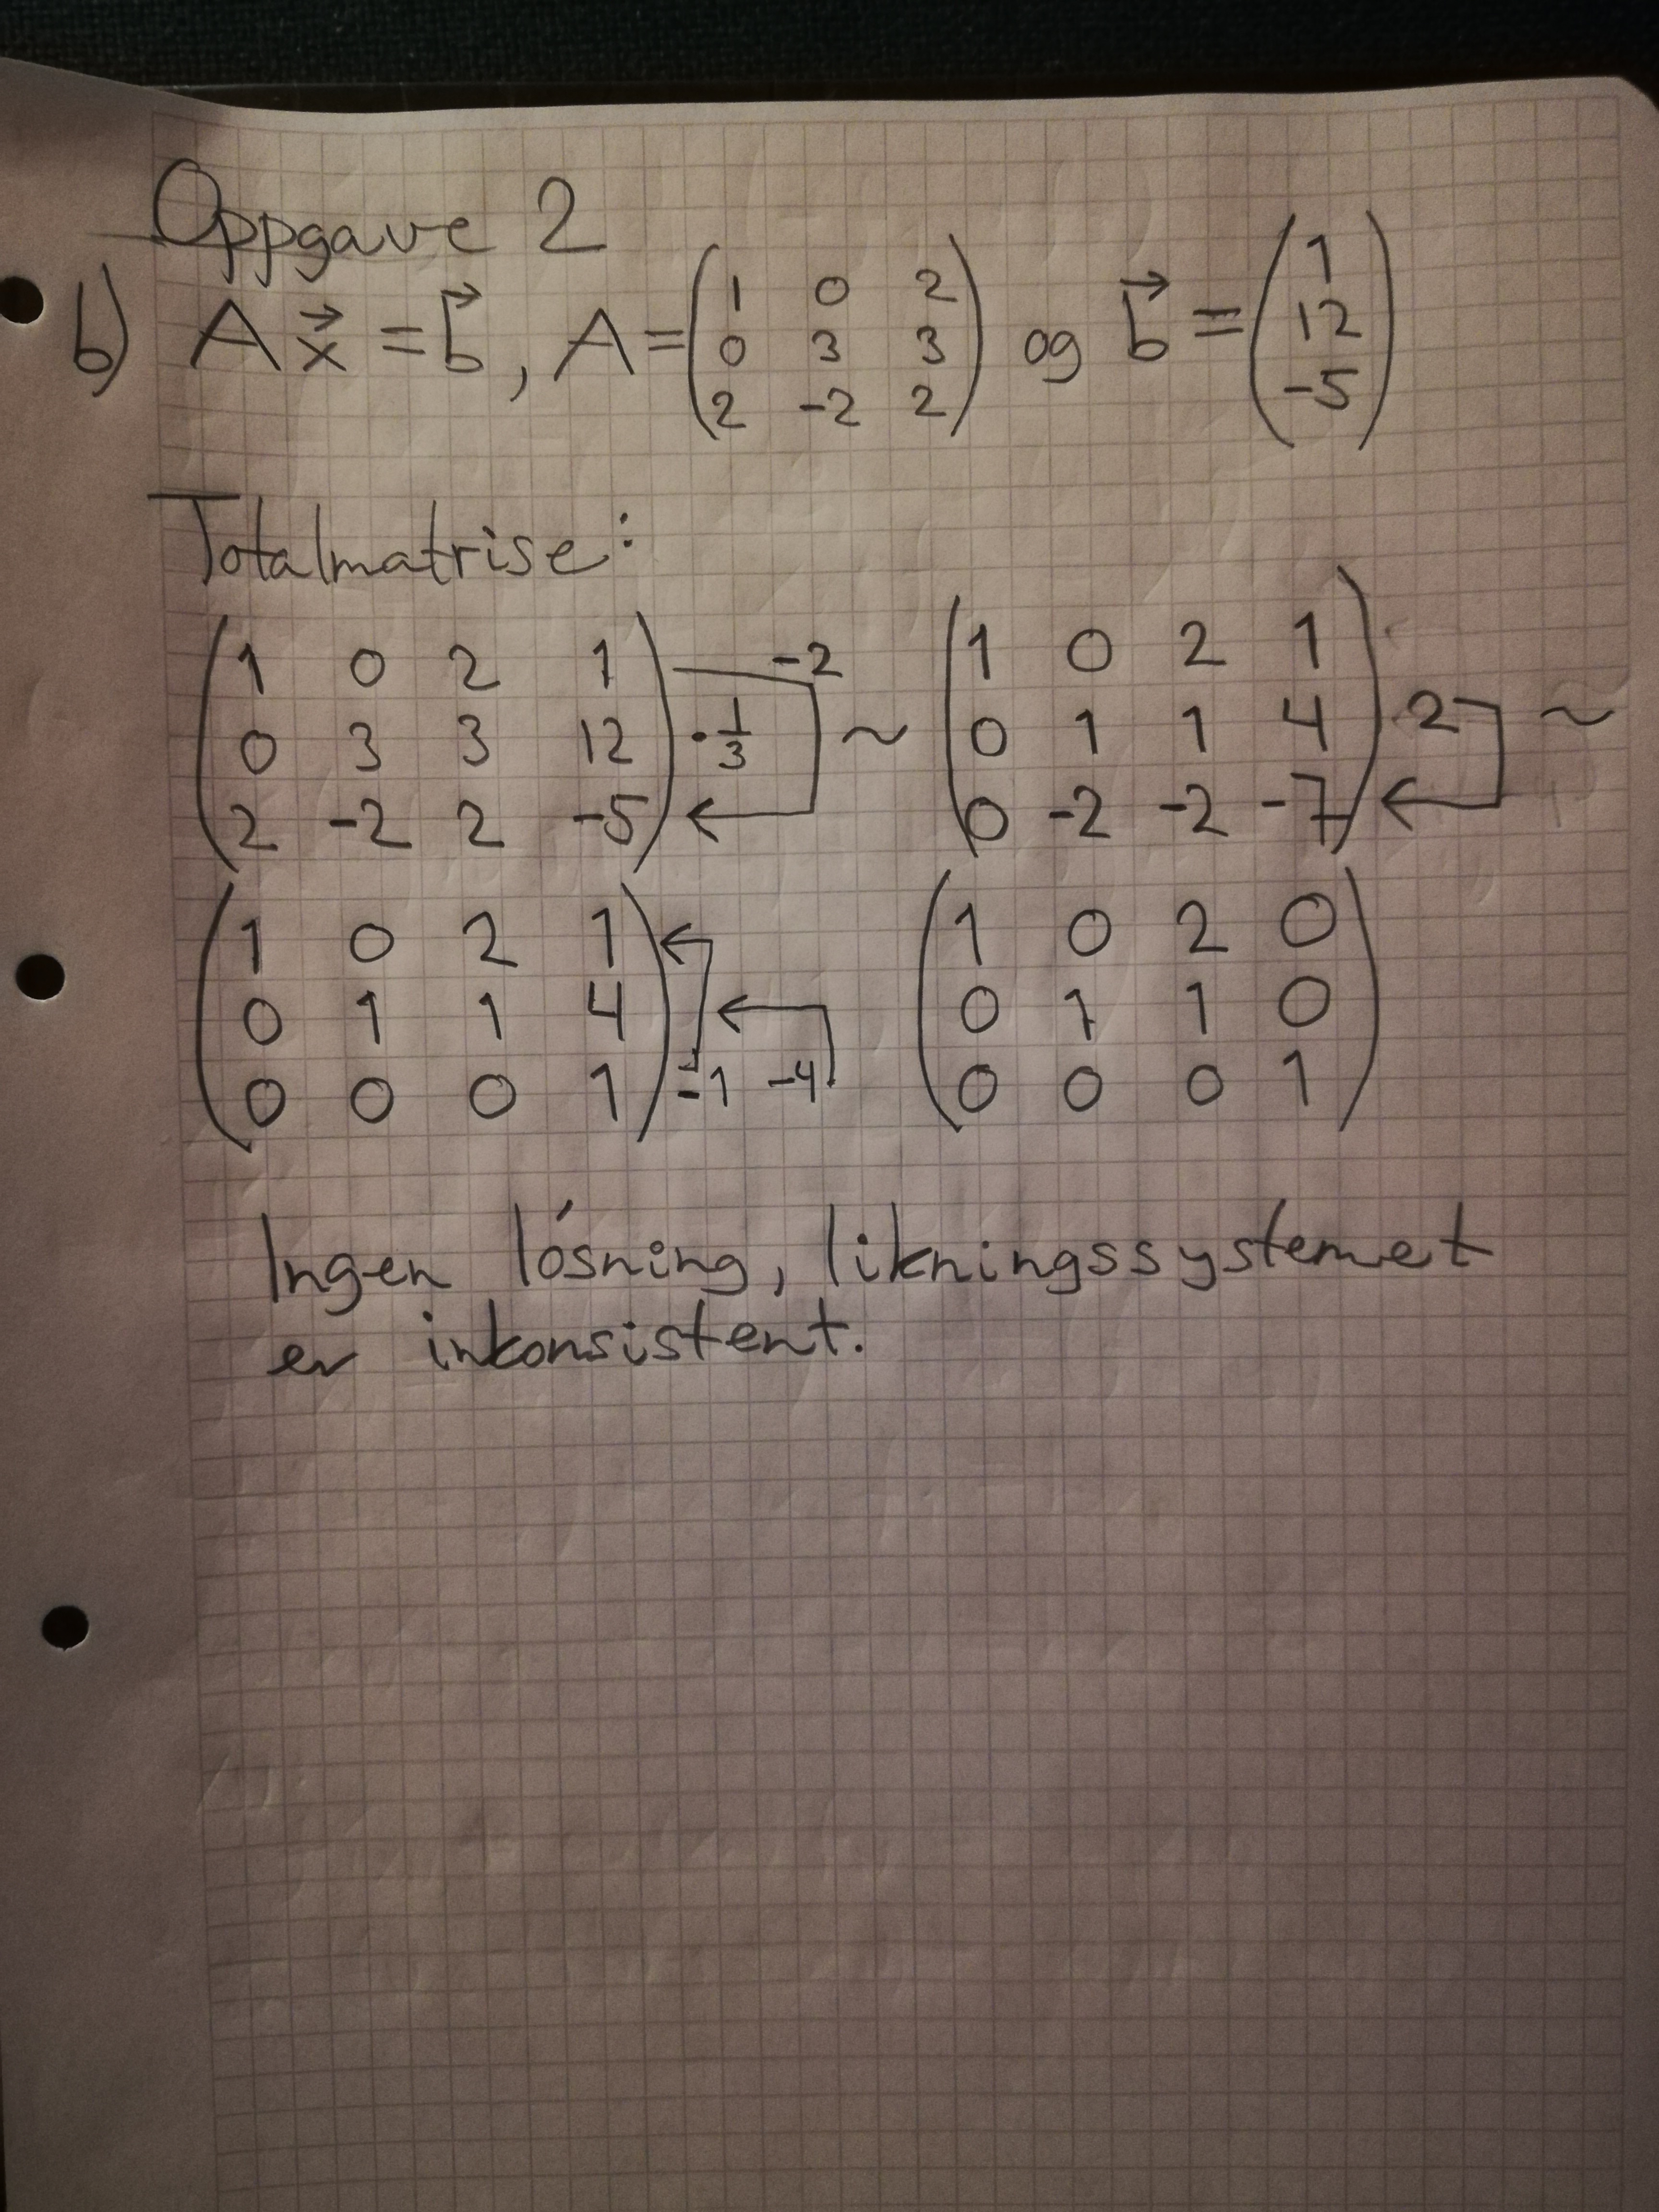 Oppgave 2
b) A x⃗ = b⃗, A = (1 0 2 / 0 3 3 / 2 -2 2) og b⃗ = (1 / 12 / -5)
Totalmatrise:
(1 0 2 1) -2 (1 0 2 1)
(0 3 3 12) · 1/3 ~ (0 1 1 4) 2 ~
(2 -2 2 -5) ← (0 -2 -2 -7) ←
(1 0 2 1) ← (1 0 2 0)
(0 1 1 4) ← (0 1 1 0)
(0 0 0 1) -1 -4 (0 0 0 1)
Ingen lósning, likningssystemet
er inkonsistent.